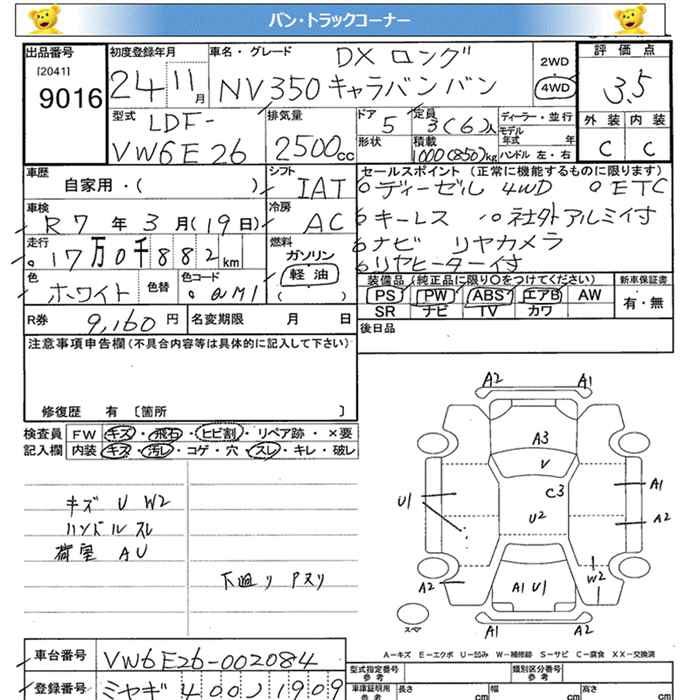 バン・トラックコーナー
出品番号 初度登録年月 車名・グレード DX ロング 2WD 評価点
[2041] 9016 24 11月 NV350 キャラバンバン 4WD 3.5
型式 LDF- 排気量 ドア 5 定員 3(6)人 ディーラー・並行 外装 内装
VW6E26 2500cc 形状 積載 1000(850)kg モデル年式 年 C C
ハンドル 左・右
車歴 シフト セールスポイント (正常に機能するものに限ります)
自家用・( ) IAT ○ディーゼル 4WD ○ETC
車検 冷房 ○キーレス ○社外アルミ付
R7年3月(19日) AC ○ナビ リヤカメラ
走行 燃料 ○リヤヒーター付
17万0千882km ガソリン
色 色替 色コード 軽油 装備品 (純正品に限り○をつけてください) 新車保証書
ホワイト QM1 ( ) PS PW ABS エアB AW 有・無
SR ナビ TV カワ
R券 9,160円 名変期限 月 日 後日品
注意事項申告欄(不具合内容等は具体的に記入して下さい)
修復歴 有 〔箇所 〕
検査員 FW キズ・飛石・ヒビ割・リペア跡・×要
記入欄 内装 キズ・汚レ・コゲ・穴・スレ・キレ・破レ
キズ U W2
ハンドル スレ
荷室 AU
下廻り Pスリ
A2 A1
A3
V
C3
U1 U2 A1
A2
A2 A1 U1 W2
スペア
A1 A2
A-キズ E-エクボ U-凹み W-補修跡 S-サビ C-腐食 XX-交換済
車台番号 VW6E26-002084 型式指定番号 参考 類別区分番号 参考
登録番号 ミヤギ 400 ﾉ 1909 車庫証明用 参考 長さ cm 幅 cm 高さ cm